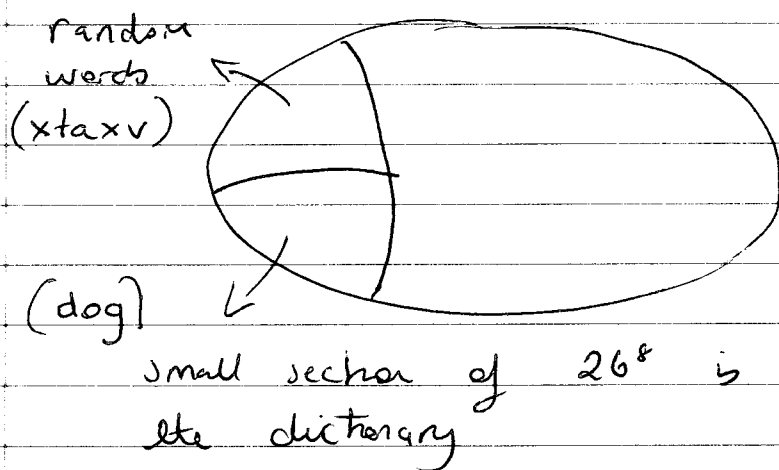 random
words
(xtaxv)
(dog)
small section of 26⁸ is
the dictionary